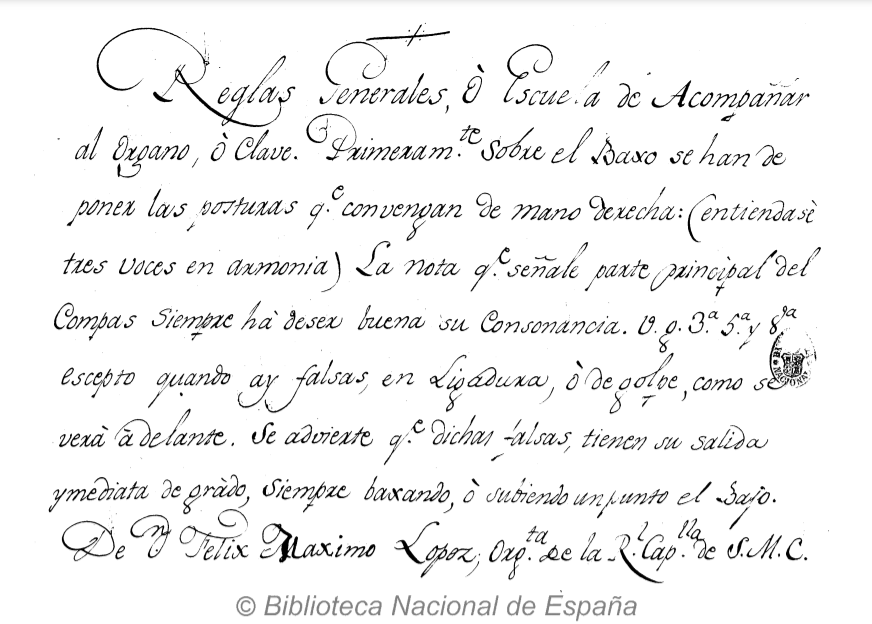 Reglas Generales, ò Escuela de Acompañar
al Organo, ò Clave. Primeram.te Sobre el Baxo se han de
poner las posturas q.e convengan de mano derecha: (entiendasè
tres voces en armonia) La nota q.e señale parte principal del
Compas Siempre hà deser buena su Consonancia. V.g. 3.a 5.a y 8.va
escepto quando ay falsas, en Ligadura, ò de golpe, como se
verà àdelante. Se advierte q.e dichas falsas, tienen su salida
ymediata de gràdo, Siempre baxando, ò subiendo un punto el Bajo.
De Dn Felix Maximo Lopez, Org.ta de la R.l Cap.lla de S.M.C.
© Biblioteca Nacional de España